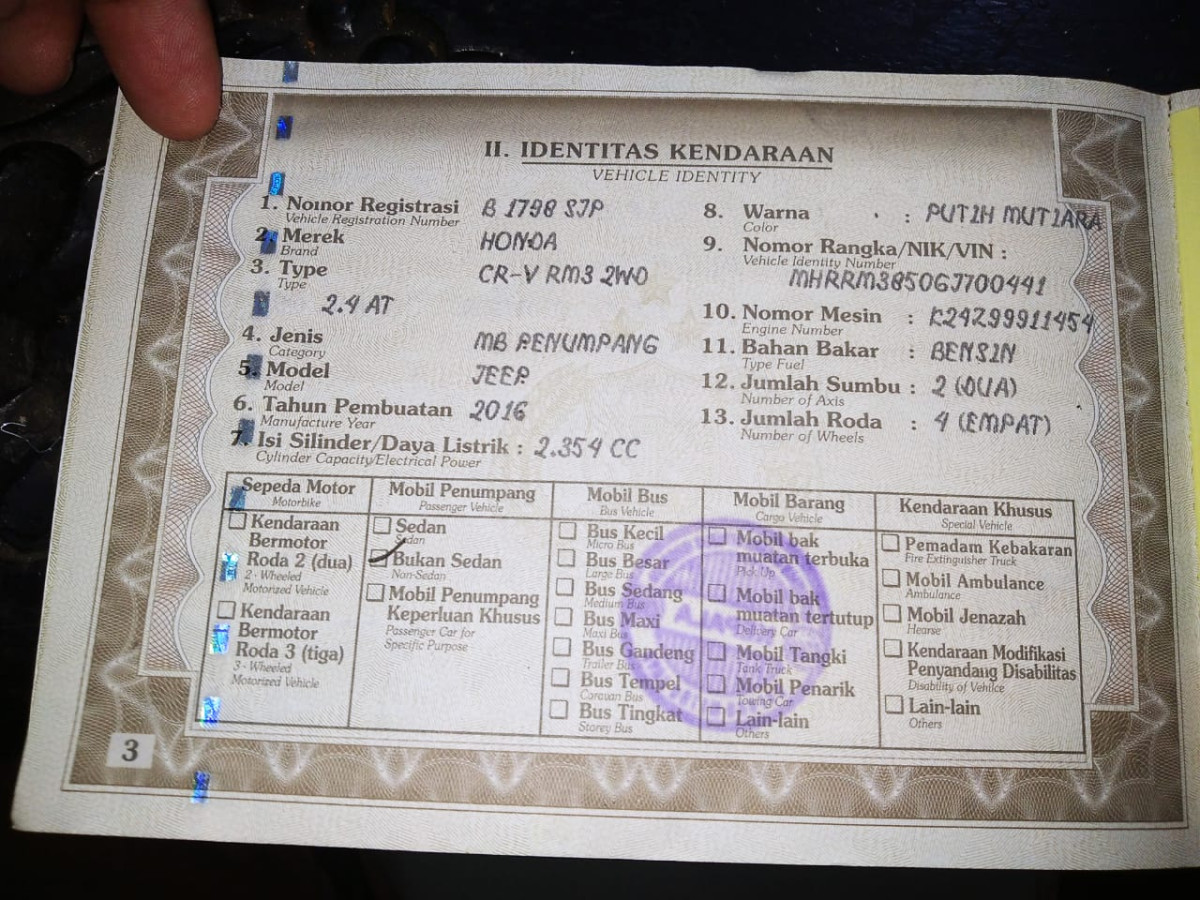 II. IDENTITAS KENDARAAN
VEHICLE IDENTITY
1. Nomor Registrasi B 1798 SJP
Vehicle Registration Number
2. Merek HONDA
Brand
3. Type CR-V RM3 2WD
Type
2.4 AT
4. Jenis MB PENUMPANG
Category
5. Model JEEP
Model
6. Tahun Pembuatan 2016
Manufacture Year
7. Isi Silinder/Daya Listrik : 2.354 CC
Cylinder Capacity/Electrical Power
8. Warna : PUTIH MUTIARA
Color
9. Nomor Rangka/NIK/VIN :
Vehicle Identity Number
MHRRM3850GJ700441
10. Nomor Mesin : K24Z99911454
Engine Number
11. Bahan Bakar : BENSIN
Type Fuel
12. Jumlah Sumbu : 2 (DUA)
Number of Axis
13. Jumlah Roda : 4 (EMPAT)
Number of Wheels
Sepeda Motor
Motorbike
Kendaraan
Bermotor
Roda 2 (dua)
2 - Wheeled
Motorized Vehicle
Kendaraan
Bermotor
Roda 3 (tiga)
3 - Wheeled
Motorized Vehicle
Mobil Penumpang
Passenger Vehicle
Sedan
Sedan
Bukan Sedan
Non-Sedan
Mobil Penumpang
Keperluan Khusus
Passenger Car for
Specific Purpose
Mobil Bus
Bus Vehicle
Bus Kecil
Micro Bus
Bus Besar
Large Bus
Bus Sedang
Medium Bus
Bus Maxi
Maxi Bus
Bus Gandeng
Trailer Bus
Bus Tempel
Caravan Bus
Bus Tingkat
Storey Bus
Mobil Barang
Cargo Vehicle
Mobil bak
muatan terbuka
Pick Up
Mobil bak
muatan tertutup
Delivery Car
Mobil Tangki
Tank Truck
Mobil Penarik
Towing Car
Lain-lain
Others
Kendaraan Khusus
Special Vehicle
Pemadam Kebakaran
Fire Extinguisher Truck
Mobil Ambulance
Ambulance
Mobil Jenazah
Hearse
Kendaraan Modifikasi
Penyandang Disabilitas
Disability of Vehilce
Lain-lain
Others
3